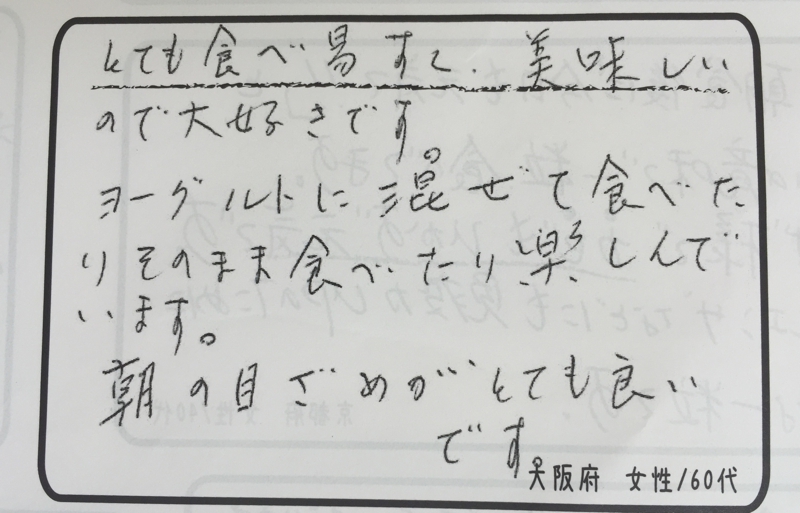 とても食べ易すく、美味しい
ので大好きです。
ヨーグルトに混ぜて食べた
りそのまま食べたり楽しんで
います。
朝の目ざめがとても良い
です。
大阪府 女性/60代